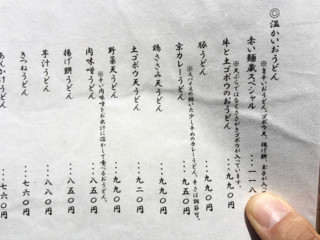 ◎温かいおうどん
赤い麺蔵スペシャル・・・一一八
牛と土ゴボウのおうどん・・・九九〇円
豚うどん・・・九九〇円
京カレーうどん・・・九五〇円
鶏ささみ天うどん・・・九九〇円
土ゴボウ天うどん・・・九二〇円
野菜天うどん・・・九九〇円
肉味噌うどん・・・八五〇円
揚げ餅うどん・・・八五〇円
芋汁うどん・・・八八〇円
きつねうどん・・・七六〇円
あんかけうどん・・・七六〇円